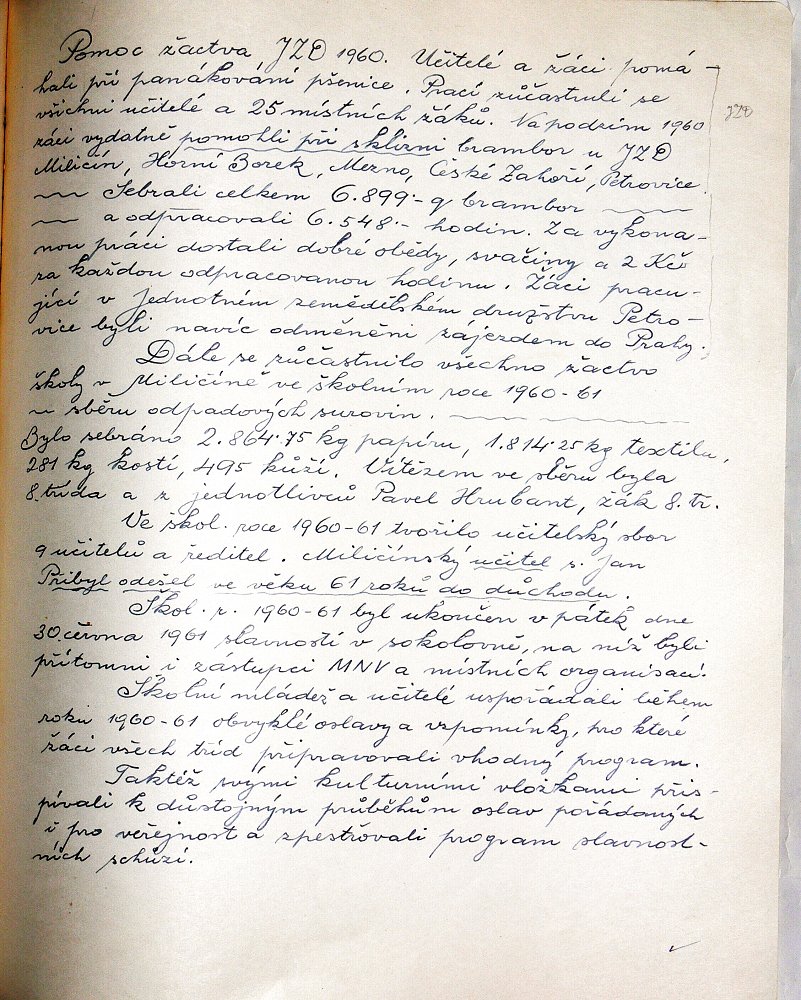 Pomoc žactva JZD 1960. Učitelé a žáci pomá-
hali při panákování pšenice. Prací zúčastnili se
všichni učitelé a 25 místních žáků. Na podzim 1960
JZD
žáci vydatně pomohli při sklizni brambor u JZD
Miličín, Horní Borek, Mezno, České Zahoří, Petrovice.
Sebrali celkem 6.899·- q brambor
a odpracovali 6.548·- hodin. Za vykona-
nou práci dostali dobré obědy, svačiny a 2 Kčs
za každou odpracovanou hodinu. Žáci pracu-
jící v Jednotném zemědělském družstvu Petro-
vice byli navíc odměněni zájezdem do Prahy.
Dále se zúčastnilo všechno žactvo
školy v Miličíně ve školním roce 1960-61
sběru odpadových surovin.
Bylo sebráno 2.864·75 kg papíru, 1.814·25 kg textilu,
281 kg kostí, 495 kůží. Vítězem ve sběru byla
8. třída a z jednotlivců Pavel Hrubant, žák 8. tř.
Ve škol. roce 1960-61 tvořilo učitelský sbor
9 učitelů a ředitel. Miličínský učitel s. Jan
Přibyl odešel ve věku 61 roků do důchodu.
Škol. r. 1960-61 byl ukončen v pátek dne
30. června 1961 slavností v sokolovně, na níž byli
přítomni i zástupci MNV a místních organisací.
Školní mládež a učitelé uspořádali během
roku 1960-61 obvyklé oslavy a vzpomínky, pro které
žáci všech tříd připravovali vhodný program.
Taktéž svými kulturními vložkami přis-
pívali k důstojným průběhům oslav pořádaných
i pro veřejnost a zpestřovali program slavnost-
ních schůzí.